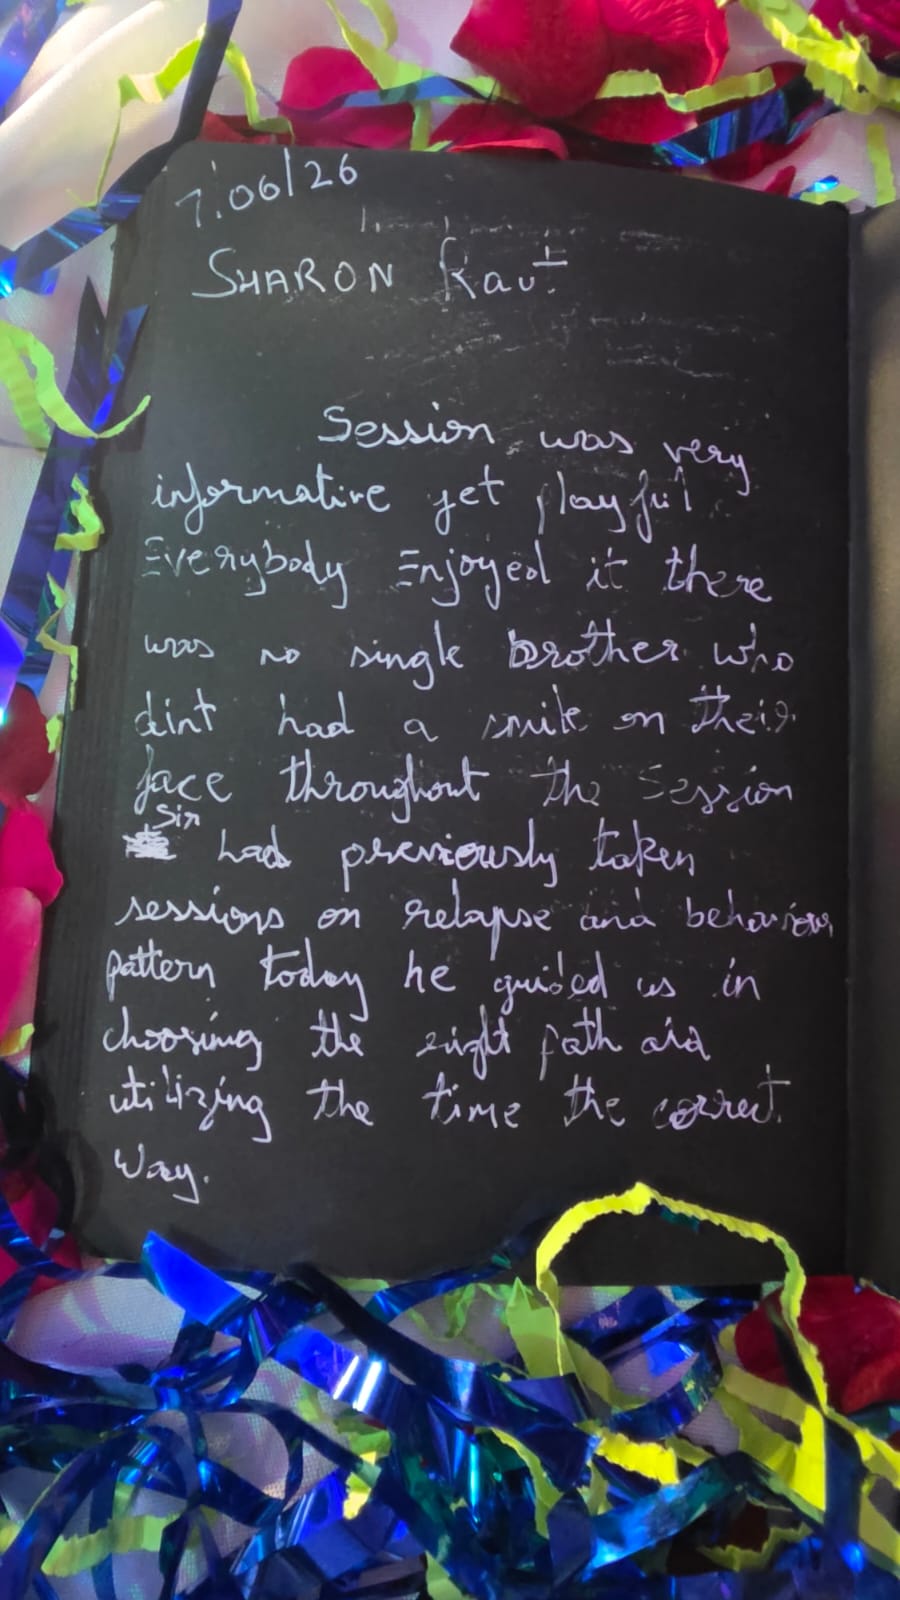 7.06/26
SHARON Raut
Session was very
informative yet playful
Everybody Enjoyed it there
was no single brother who
dint had a smile on their
face throughout the Session
Sir had previously taken
sessions on relapse and behaviour
pattern today he guided us in
choosing the right path and
utilizing the time the correct
way.